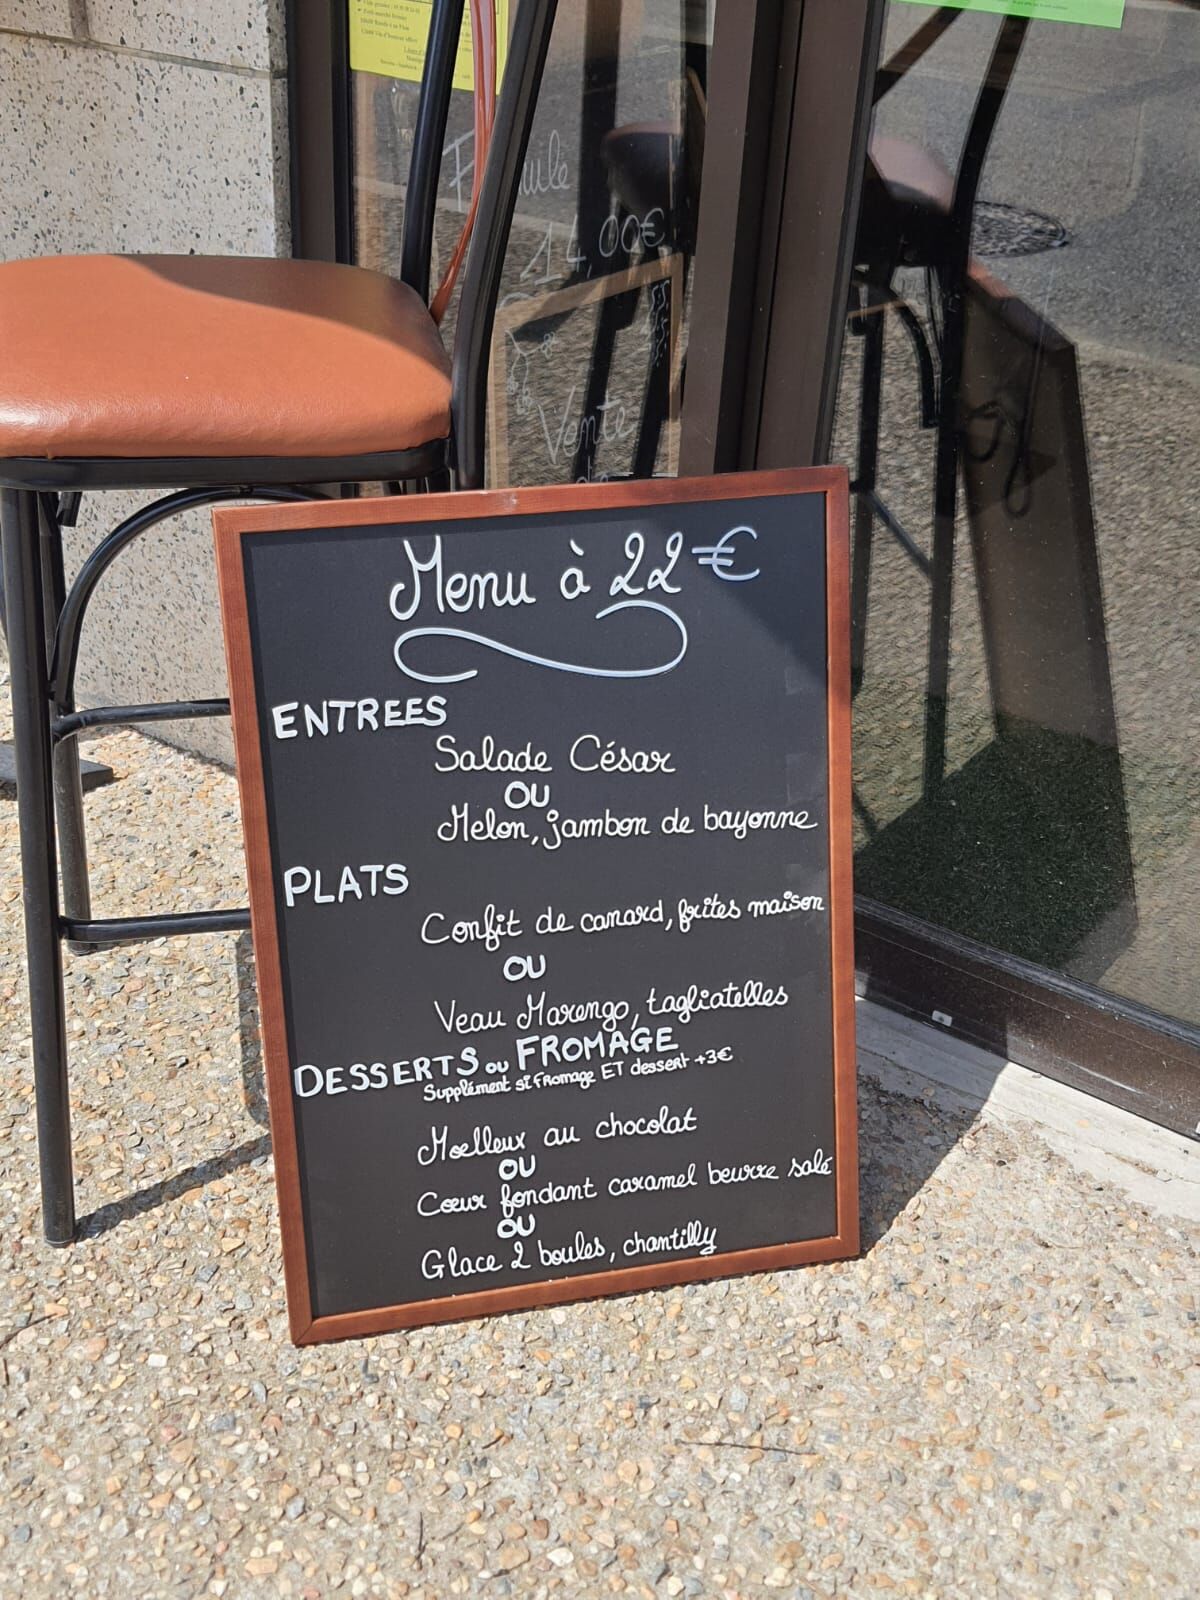 Formule
14,00€
Vente
Menu à 22€
ENTREES
Salade César
OU
Melon, jambon de bayonne
PLATS
Confit de canard, frites maison
OU
Veau Marengo, tagliatelles
DESSERTS ou FROMAGE
Supplément si fromage ET dessert +3€
Moelleux au chocolat
OU
Cœur fondant caramel beurre salé
OU
Glace 2 boules, chantilly